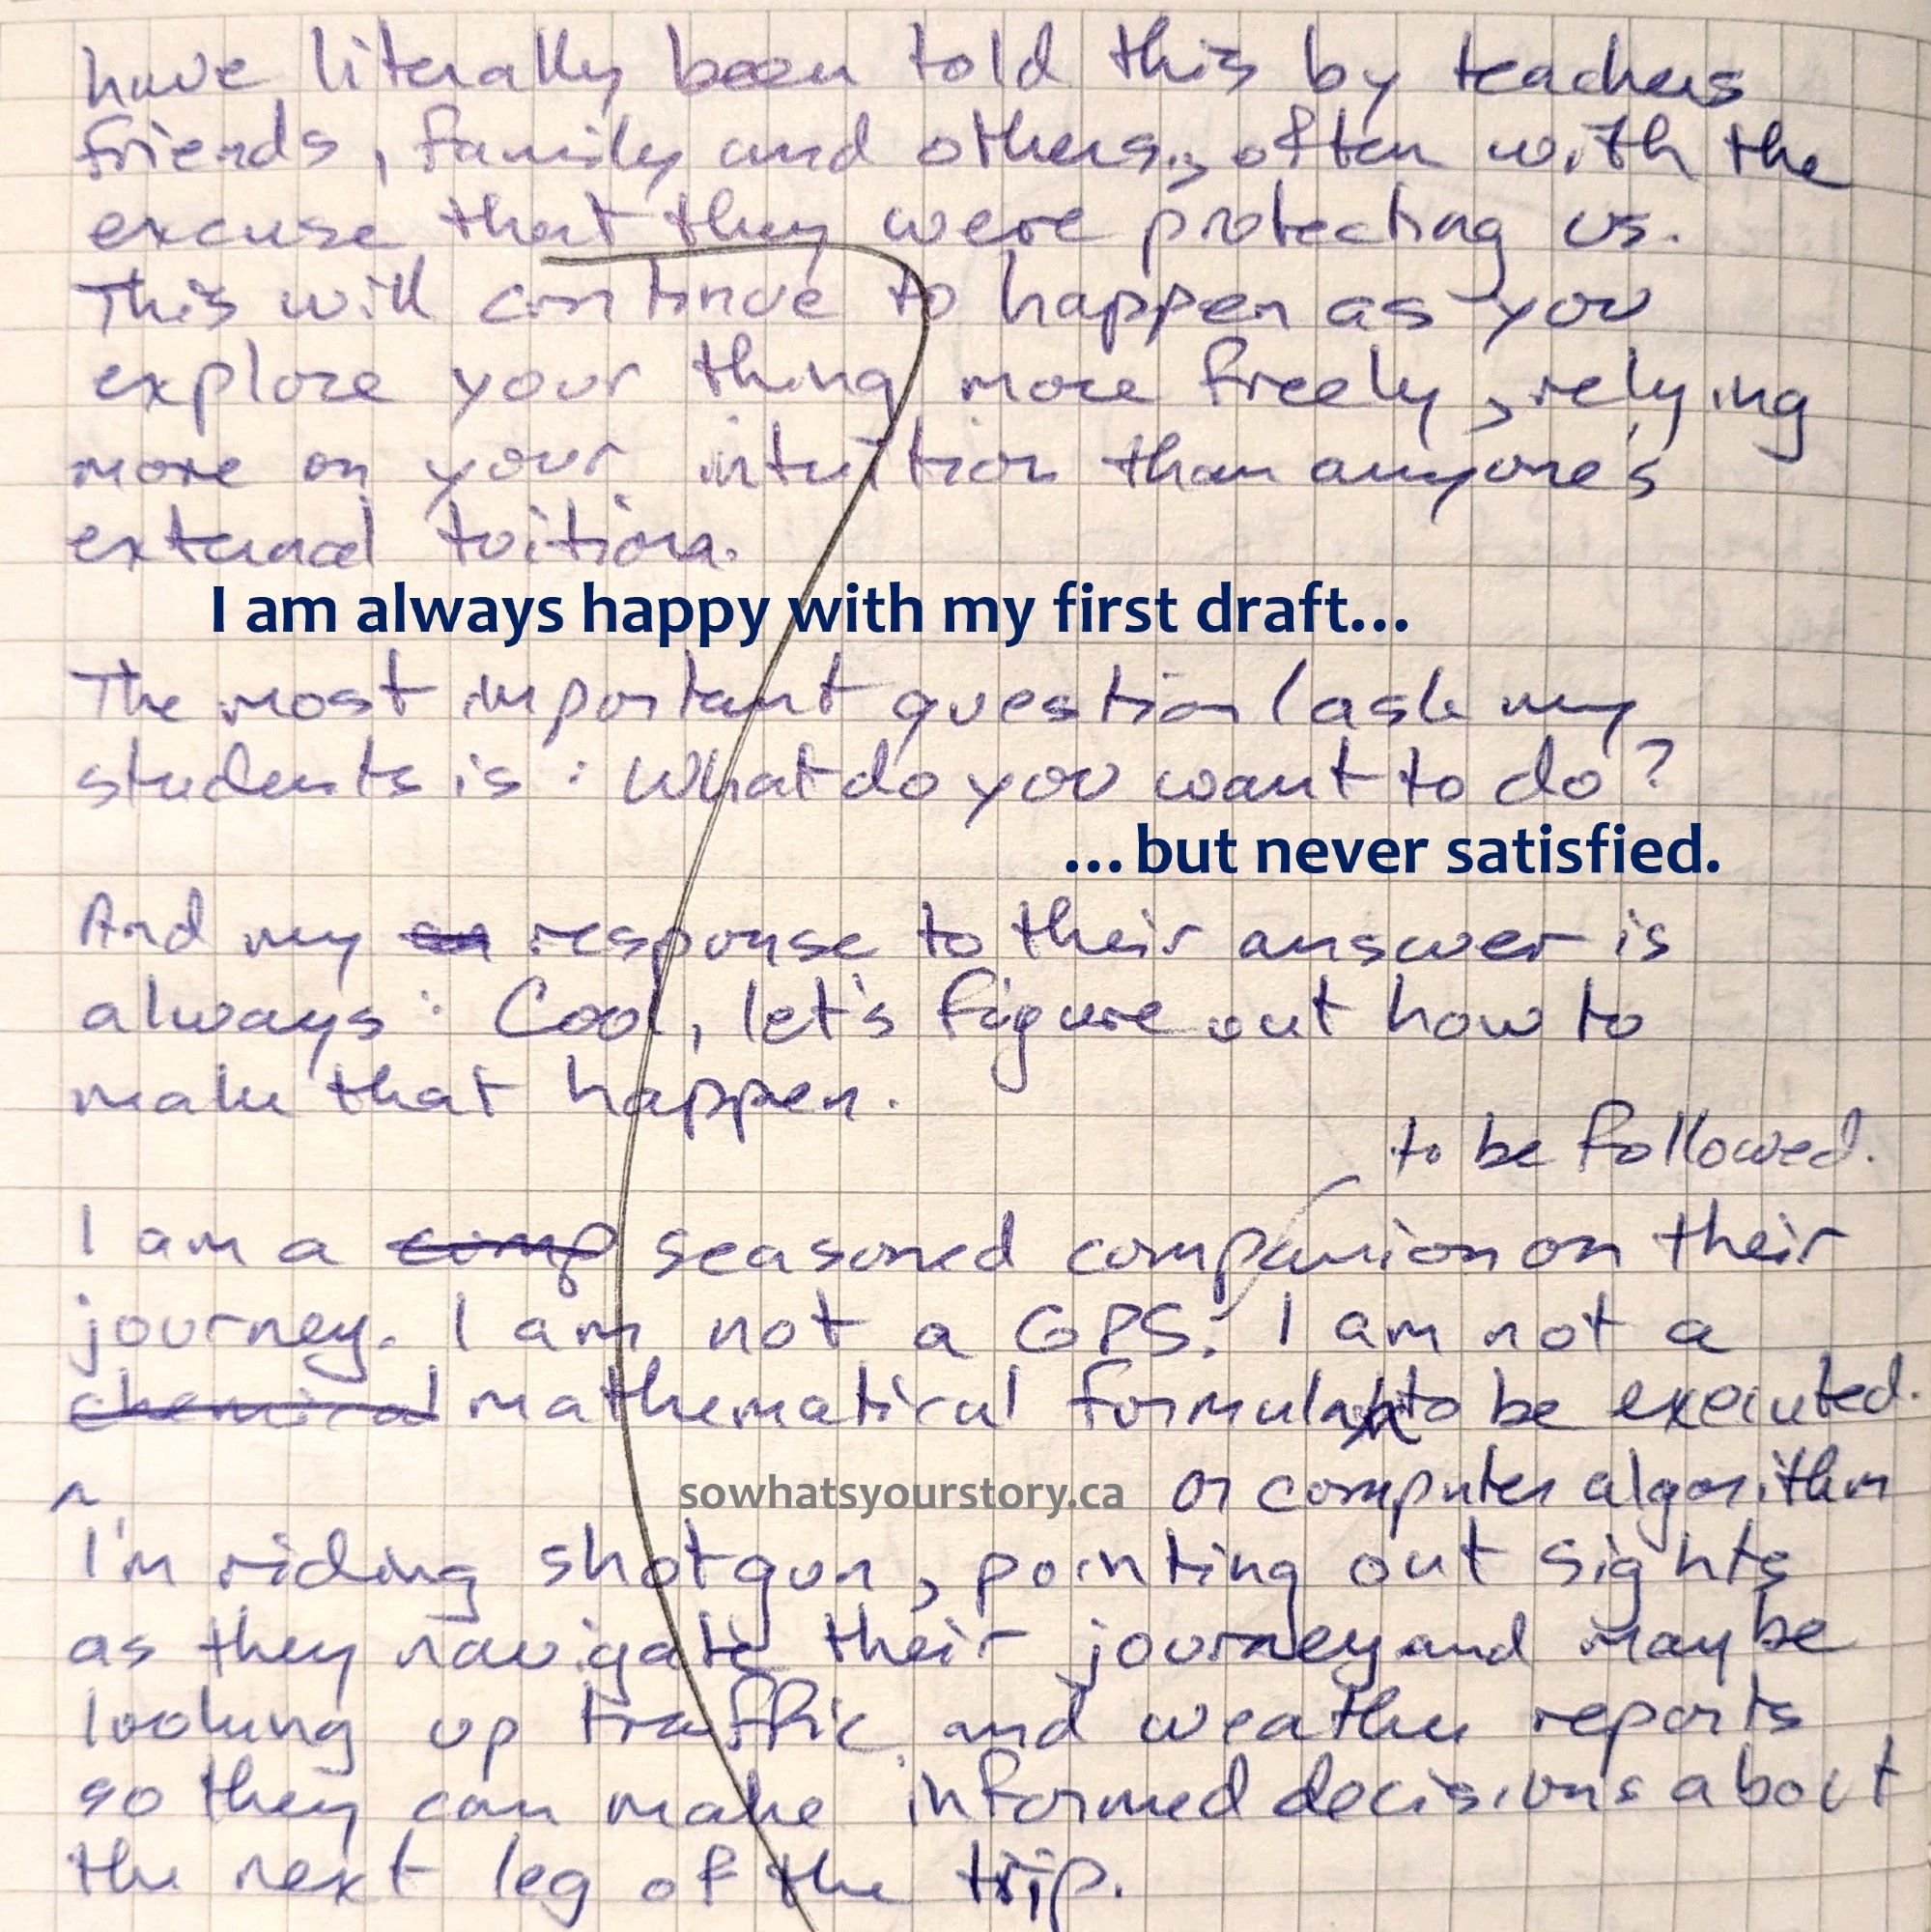 have literally been told this by teachers
friends, family and others, often with the
excuse that they were protecting us.
This will continue to happen as you
explore your thing more freely, relying
more on your intuition than anyone's
external tuition.
I am always happy with my first draft...
The most important question I ask my
students is: What do you want to do?
...but never satisfied.
And my response to their answer is
always: Cool, let's figure out how to
make that happen.
to be followed.
I am a comp seasoned companion on their
journey. I am not a GPS. I am not a
chemical mathematical formula to be executed.
sowhatsyourstory.ca or computer algorithm
I'm riding shotgun, pointing out sights
as they navigate their journey and maybe
looking up traffic and weather reports
so they can make informed decisions about
the next leg of the trip.